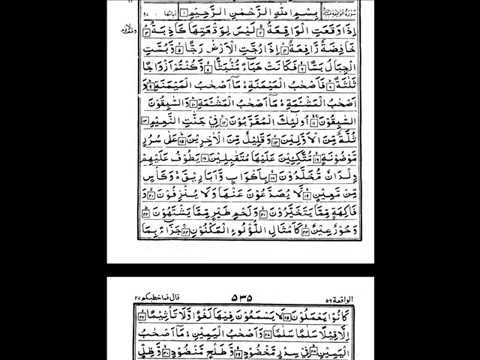 بِسْمِ اللّٰهِ الرَّحْمٰنِ الرَّحِيْمِ
اِذَا وَقَعَتِ الْوَاقِعَةُ ۝ لَيْسَ لِوَقْعَتِهَا كَاذِبَةٌ ۝
خَافِضَةٌ رَّافِعَةٌ ۝ اِذَا رُجَّتِ الْاَرْضُ رَجًّا ۝ وَّبُسَّتِ
الْجِبَالُ بَسًّا ۝ فَكَانَتْ هَبَآءً مُّنْۢبَثًّا ۝ وَّكُنْتُمْ اَزْوَاجًا
ثَلٰثَةً ۝ فَاَصْحٰبُ الْمَيْمَنَةِ مَآ اَصْحٰبُ الْمَيْمَنَةِ ۝ وَ
اَصْحٰبُ الْمَشْـَٔمَةِ مَآ اَصْحٰبُ الْمَشْـَٔمَةِ ۝ وَالسّٰبِقُوْنَ
السّٰبِقُوْنَ ۝ اُولٰٓئِكَ الْمُقَرَّبُوْنَ ۝ فِيْ جَنّٰتِ النَّعِيْمِ ۝
ثُلَّةٌ مِّنَ الْاَوَّلِيْنَ ۝ وَقَلِيْلٌ مِّنَ الْاٰخِرِيْنَ ۝ عَلٰى سُرُرٍ
مَّوْضُوْنَةٍ ۝ مُّتَّكِـِٕيْنَ عَلَيْهَا مُتَقٰبِلِيْنَ ۝ يَطُوْفُ عَلَيْهِمْ
وِلْدَانٌ مُّخَلَّدُوْنَ ۝ بِاَكْوَابٍ وَّاَبَارِيْقَ وَكَاْسٍ
مِّنْ مَّعِيْنٍ ۝ لَّا يُصَدَّعُوْنَ عَنْهَا وَلَا يُنْزِفُوْنَ ۝ وَ
فَاكِهَةٍ مِّمَّا يَتَخَيَّرُوْنَ ۝ وَلَحْمِ طَيْرٍ مِّمَّا يَشْتَهُوْنَ ۝
وَحُوْرٌ عِيْنٌ ۝ كَاَمْثَالِ اللُّؤْلُؤِ الْمَكْنُوْنِ ۝ جَزَآءًۢ بِمَا
الواقعة ٥٦ ۵۳۵ قال فما خطبكم ٢٧
كَانُوْا يَعْمَلُوْنَ ۝ لَا يَسْمَعُوْنَ فِيْهَا لَغْوًا وَّلَا تَاْثِيْمًا ۝
اِلَّا قِيْلًا سَلٰمًا سَلٰمًا ۝ وَاَصْحٰبُ الْيَمِيْنِ مَآ اَصْحٰبُ
الْيَمِيْنِ ۝ فِيْ سِدْرٍ مَّخْضُوْدٍ ۝ وَّطَلْحٍ مَّنْضُوْدٍ ۝ وَّظِلٍّ